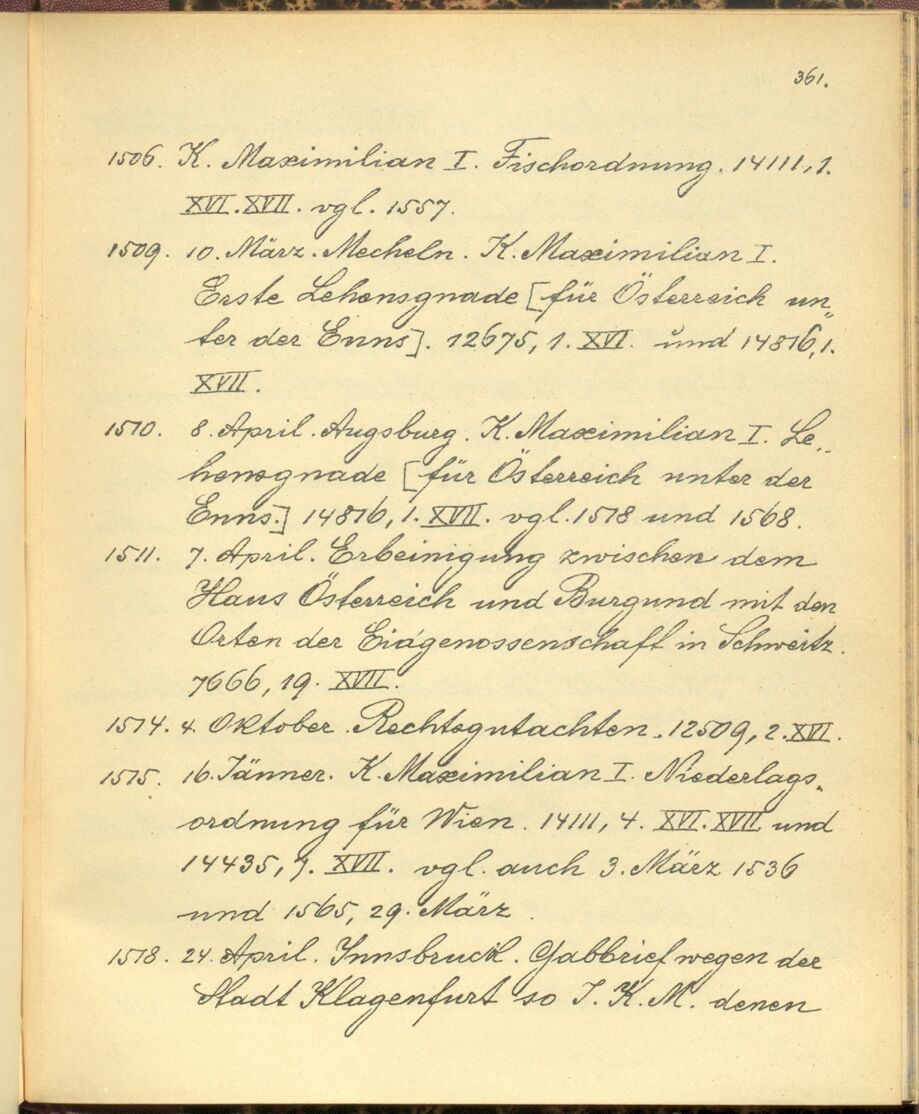 361.
1506. K. Maximilian I. Fischordnung. 14111, 1.
XVI. XVII. vgl. 1557.
1509. 10. März. Mecheln. K. Maximilian I.
Erste Lehensgnade [für Österreich un„
ter der Enns]. 12675, 1. XVI. und 14816, 1.
XVII.
1510. 8. April. Augsburg. K. Maximilian I. Le„
hensgnade [für Österreich unter der
Enns.] 14816, 1. XVII. vgl. 1518 und 1568.
1511. 7. April. Erbeinigung zwischen dem
Haus Österreich und Burgund mit den
Orten der Eidgenossenschaft in Schweitz.
7666, 19. XVII.
1514. 4. Oktober. Rechtsgutachten. 12509, 2. XVI.
1515. 16. Jänner. K. Maximilian I. Niederlags„
ordnung für Wien. 14111, 4. XVI. XVII und
14435, 7. XVII. vgl. auch 3. März 1536
und 1565, 29. März.
1518. 24. April. Innsbruck. Gabbrief wegen der
Stadt Klagenfurt so I. K. M. denen